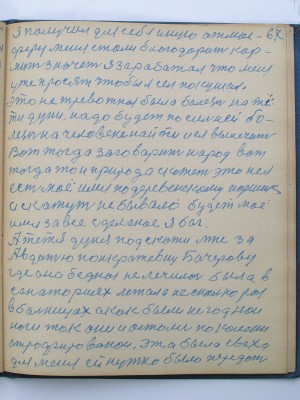 я получил для себя лишю атмос- 67
феру меня стали благодарит кар-
мит значет я заработал что меня
уже просят чтобы я сел покушал.
Это не тревотная была болезн на тё-
ти дуни. надо будет посилней бо-
лезн на человеке найти и я вылечат
Вот тогда заговарит народ вот
тогда то и природа скажет это не я
ест моё имя по деревенскому
и скажут не бывало будет моё
имя за все сделаное я бог.
А тетя дуня подскажи мне за
Авдотю панкратевну Бочарову
где она бедная не лечилас была в
санаториях летала не сколко раз
в болницах а как были не годной
ноги так они и осталис по коленки
атрофированой, эта была сваха
для меня ей нужно было передат